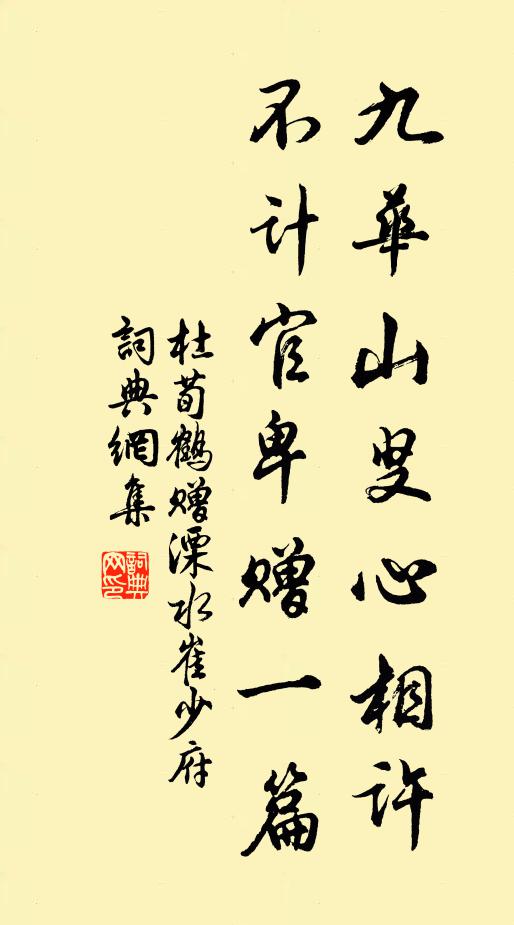 九華山叟心相許
不计官卑贈一篇
杜荀鶴贈溧水崔少府
詞典網集
詞典
网印